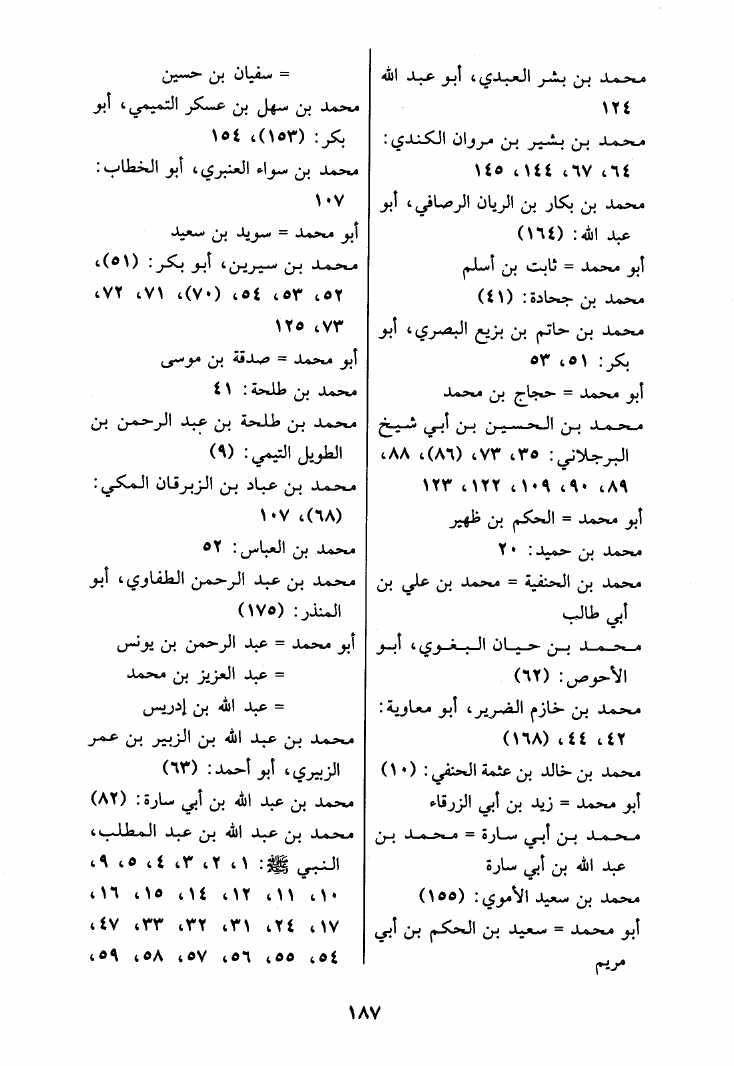 محمد بن بشر العبدي، أبو عبد الله
١٢٤
محمد بن بشير بن مروان الكندي:
٦٤، ٦٧، ١٤٤، ١٤٥
محمد بن بكار بن الريان الرصافي، أبو
عبد الله: (١٦٤)
أبو محمد = ثابت بن أسلم
محمد بن جحادة: (٤١)
محمد بن حاتم بن بزيع البصري، أبو
بكر: ٥١، ٥٣
أبو محمد = حجاج بن محمد
محمد بن الحسين بن أبي شيخ
البرجلاني: ٣٥، ٧٣، (٨٦)، ٨٨،
٨٩، ٩٠، ١٠٩، ١٢٢، ١٢٣
أبو محمد = الحكم بن ظهير
محمد بن حميد: ٢٠
محمد بن الحنفية = محمد بن علي بن
أبي طالب
محمد بن حيان البغوي، أبو
الأحوص: (٦٢)
محمد بن خازم الضرير، أبو معاوية:
٤٢، ٤٤، (١٦٨)
محمد بن خالد بن عثمة الحنفي: (١٠)
أبو محمد = زيد بن أبي الزرقاء
محمد بن أبي سارة = محمد بن
عبد الله بن أبي سارة
محمد بن سعيد الأموي: (١٥٥)
أبو محمد = سعيد بن الحكم بن أبي
مريم
= سفيان بن حسين
محمد بن سهل بن عسكر التميمي، أبو
بكر: (١٥٣)، ١٥٤
محمد بن سواء العنبري، أبو الخطاب:
١٠٧
أبو محمد = سويد بن سعيد
محمد بن سيرين، أبو بكر: (٥١)،
٥٢، ٥٣، ٥٤، (٧٠)، ٧١، ٧٢،
٧٣، ١٢٥
أبو محمد = صدقة بن موسى
محمد بن طلحة: ٤١
محمد بن طلحة بن عبد الرحمن بن
الطويل التيمي: (٩)
محمد بن عباد بن الزبرقان المكي:
(٦٨)، ١٠٧
محمد بن العباس: ٥٢
محمد بن عبد الرحمن الطفاوي، أبو
المنذر: (١٧٥)
أبو محمد = عبد الرحمن بن يونس
= عبد العزيز بن محمد
= عبد الله بن إدريس
محمد بن عبد الله بن الزبير بن عمر
الزبيري، أبو أحمد: (٦٣)
محمد بن عبد الله بن أبي سارة: (٨٢)
محمد بن عبد الله بن عبد المطلب،
النبي ﷺ: ١، ٢، ٣، ٤، ٥، ٩،
١٠، ١١، ١٢، ١٤، ١٥، ١٦،
١٧، ٢٤، ٣١، ٣٢، ٣٣، ٤٧،
٥٤، ٥٥، ٥٦، ٥٧، ٥٨، ٥٩،
١٨٧